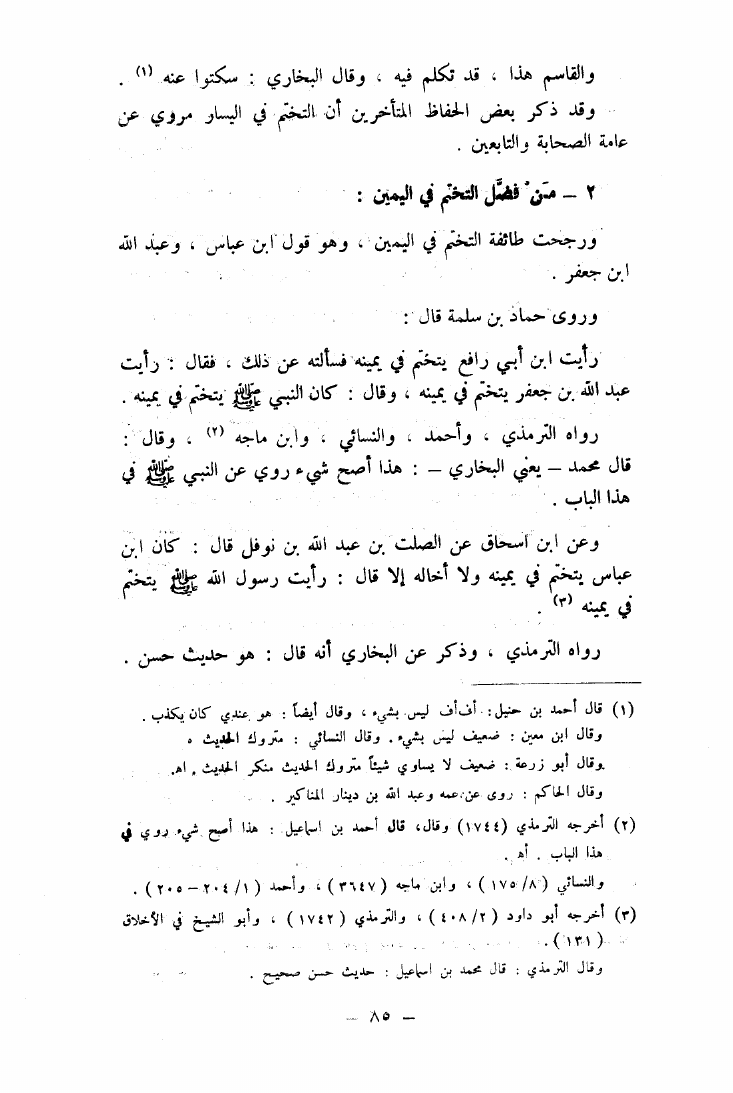 والقاسم هذا ، قد تكلم فيه ، وقال البخاري : سكتوا عنه (١) .
وقد ذكر بعض الحفاظ المتأخرين أن التختّم في اليسار مروي عن
عامة الصحابة والتابعين .
٢ – مَنْ فضَّل التختّم في اليمين :
ورجحت طائفة التختّم في اليمين ، وهو قول ابن عباس ، وعبد الله
ابن جعفر .
وروى حماد بن سلمة قال :
رأيت ابن أبي رافع يتختّم في يمينه فسألته عن ذلك ، فقال : رأيت
عبد الله بن جعفر يتختّم في يمينه ، وقال : كان النبي ﷺ يتختّم في يمينه .
رواه الترمذي ، وأحمد ، والنسائي ، وابن ماجه (٢) ، وقال :
قال محمد – يعني البخاري – : هذا أصح شيء روي عن النبي ﷺ في
هذا الباب .
وعن ابن اسحاق عن الصلت بن عبد الله بن نوفل قال : كان ابن
عباس يتختّم في يمينه ولا أخاله إلا قال : رأيت رسول الله ﷺ يتختّم
في يمينه (٣) .
رواه الترمذي ، وذكر عن البخاري أنه قال : هو حديث حسن .
(١) قال أحمد بن حنبل : أف أف ليس بشيء ، وقال أيضاً : هو عندي كان يكذب .
وقال ابن معين : ضعيف ليس بشيء . وقال النسائي : متروك الحديث .
وقال أبو زرعة : ضعيف لا يساوي شيئاً متروك الحديث منكر الحديث . اهـ.
وقال الحاكم : روى عن عمه وعبد الله بن دينار المناكير .
(٢) أخرجه الترمذي (١٧٤٤) وقال، قال أحمد بن اسماعيل : هذا أصح شيء روي في
هذا الباب . أهـ .
والنسائي (١٧٥/٨) ، وابن ماجه (٣٦٤٧) ، وأحمد (٢٠٤/١ – ٢٠٥) .
(٣) أخرجه أبو داود (٤٠٨/٢) ، والترمذي (١٧٤٢) ، وأبو الشيخ في الأخلاق
(١٣١) .
وقال الترمذي : قال محمد بن اسماعيل : حديث حسن صحيح .
– ٨٥ –